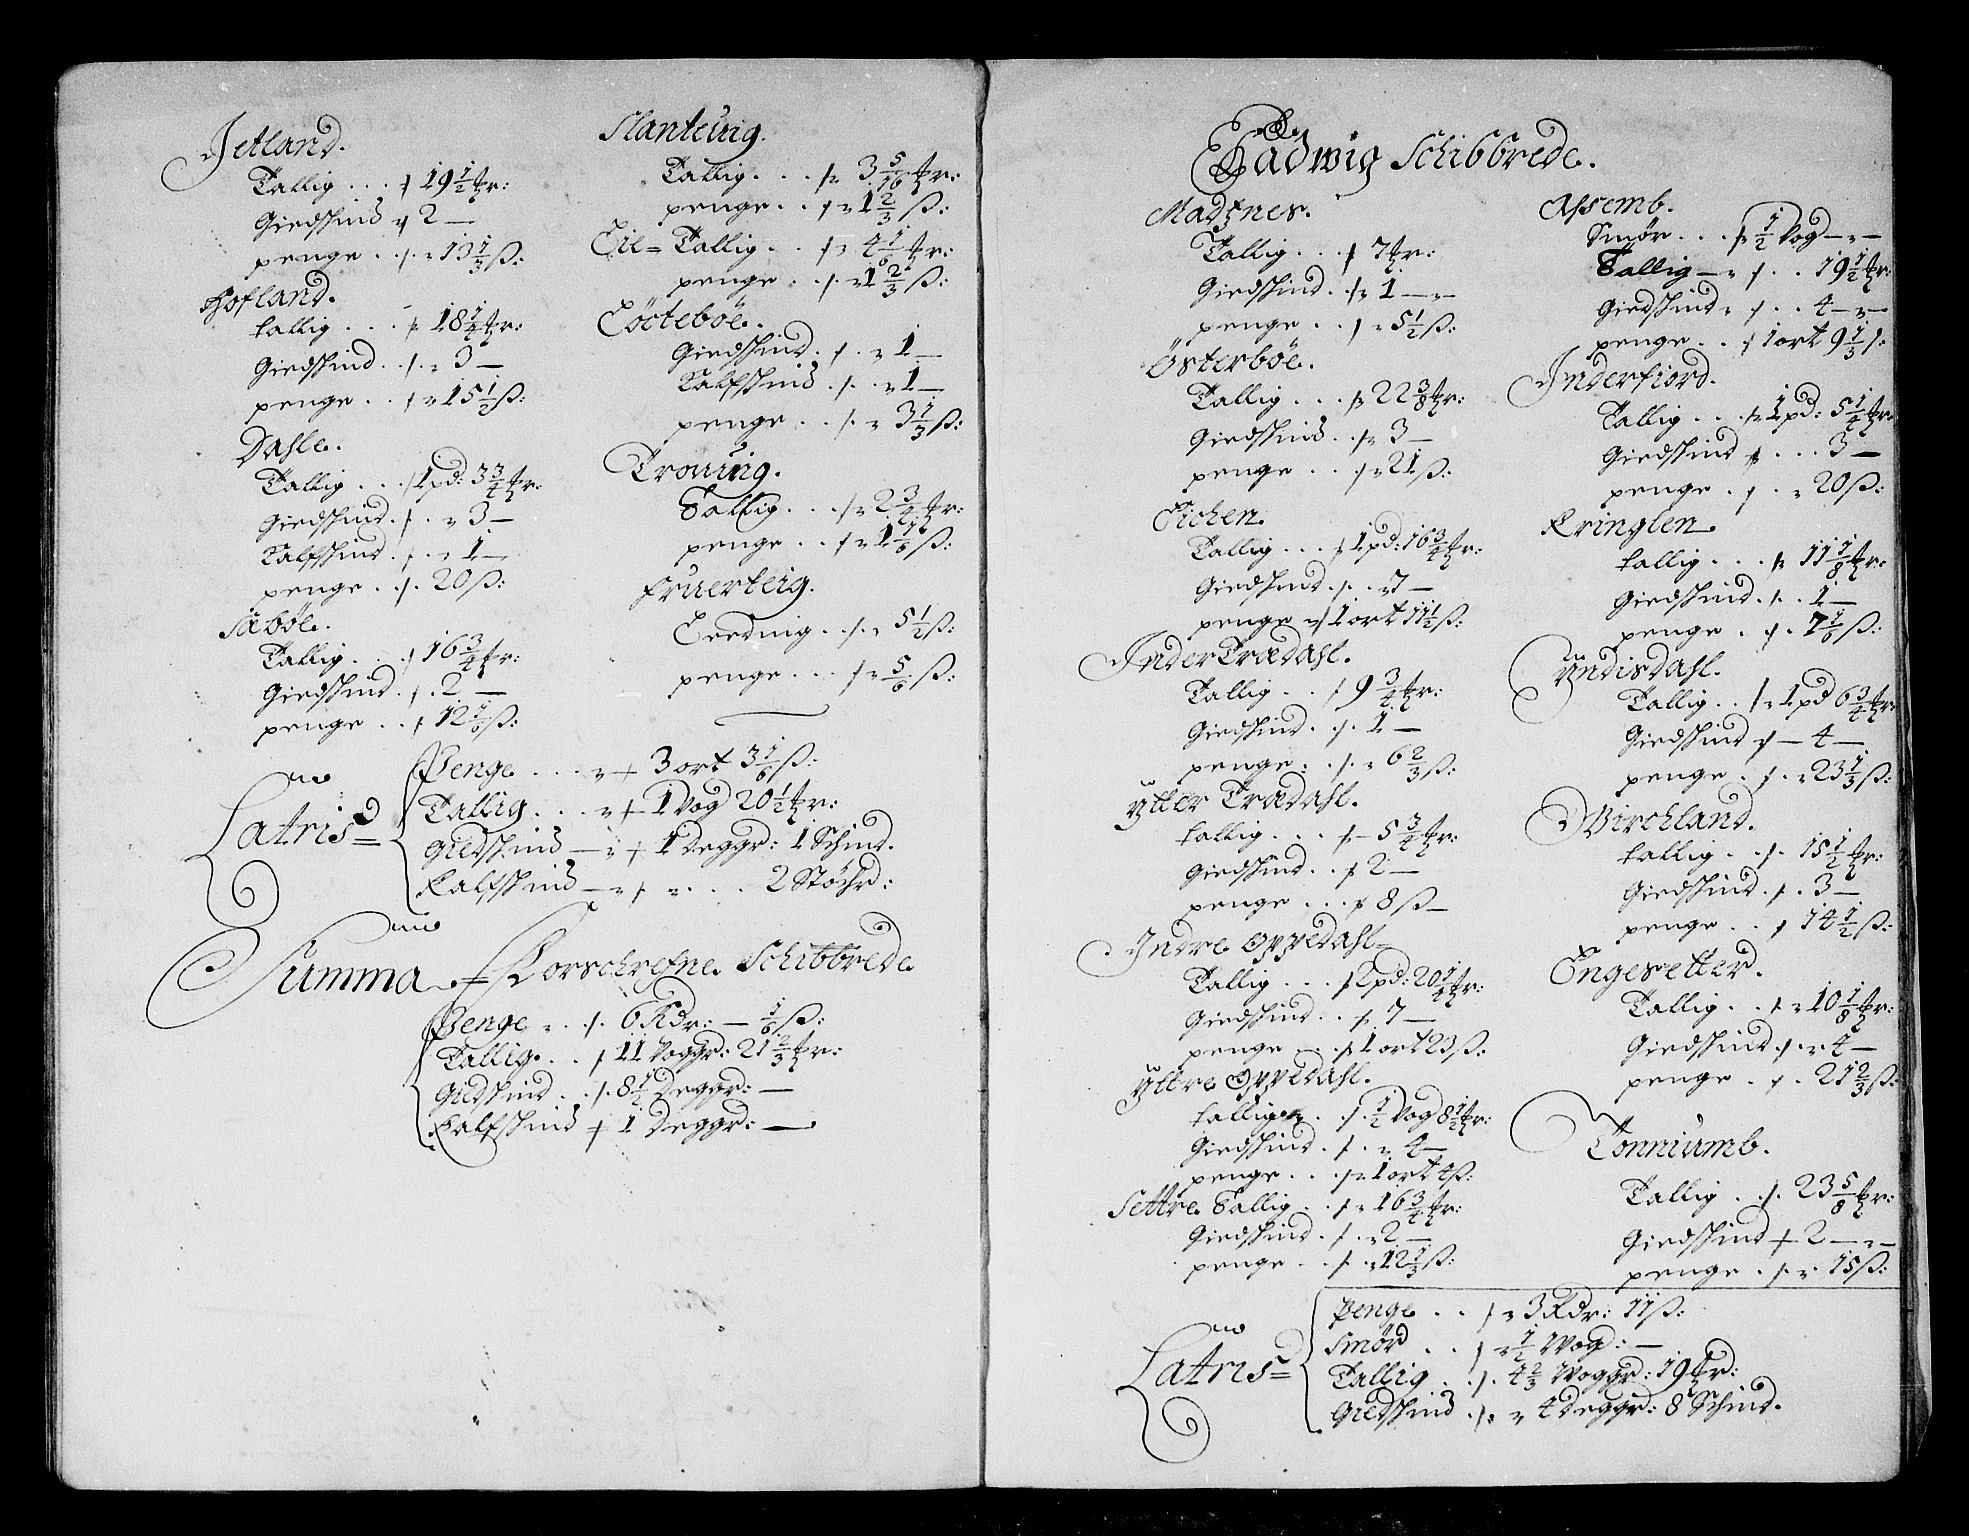 Jetland.
Tallig . . . 19 1/2 ℔r:
Giedskind 2 —
penge . . 13 1/3 ß:
Hofland.
tallig . . . 18 1/4 ℔r:
Giedskind . 3 —
penge . . 15 1/2 ß:
Dahle.
Tallig . . . 1 pd: 3 3/4 ℔r:
Giedskind . . 3 —
Kalfskind . . 1 —
penge . 20 ß:
Säböe.
Tallig . . . 16 3/4 ℔r:
Giedskind . 2 —
penge . . 12 1/6 ß:
Slanteuig.
Tallig . . . 3 5/16 ℔r:
penge . . 1 2/3 ß:
Eil= Tallig . . . 4 1/6 ℔r:
penge . . 1 2/3 ß:
Giedskind . . 1 —
Kalfskind . . 1 —
penge . . . 3 1/3 ß:
Tronuig.
Tallig . . . 2 3/4 ℔r:
penge . . 1 1/6 ß:
Fruerteig.
5 1/2 ß:
penge . . . 5/6 ß:
Latris=
Penge . . . 3 ort 3 1/6 ß:
Tallig . . . 1 Vog 20 1/2 ℔r:
Giedskind — 1 Deggr: 1 Schind.
Kalfskind — . . . 2 Stöchr:
Summa Forschrefne Schibbrede
Penge . . 6 Rdr: — 1/6 ß:
Tallig . . 11 Voggr: 21 2/3 ℔r:
Giedskind . . 8 1/2 Deggr: —
Kalfskind 1 Deggr: —
Ladwig Schibbrede.
Madznes.
Tallig . . . 7 ℔r:
Giedskind . 1 —
penge . . . 5 1/2 ß:
Österböe.
Tallig . . . 22 3/8 ℔r:
Giedskind . . 3 —
penge . . . 21 ß:
Eichen.
Tallig . . . 1 pd: 16 3/4 ℔r:
Giedskind . . 7 —
penge 1 ort 11 1/2 ß:
Inder Trædahl.
Tallig . . 9 3/4 ℔r:
Giedskind . . 1 —
penge . . . 6 2/3 ß:
Ÿtter Trædahl.
tallig . . . 5 3/4 ℔r:
Giedskind . . 2 —
penge . . . 8 ß —
Indre Oppedahl—
Tallig . . . 2 pd: 20 1/4 ℔r:
Giedskind . . 7 —
penge . . 1 ort 23 ß:
Ÿttre Oppedahl.
tallig . . 1/2 Vog 8 1/2 ℔r:
Giedskind . . 4 —
penge . . . 1 ort 4 ß:
Settre Tallig . . 16 3/4 ℔r:
Giedskind . . 2 —
penge . . . 12 1/3 ß:
Assemb.
Smör . . . 1/2 Vog —
Tallig — . . 19 1/2 ℔r:
Giedskind . . 4 —
penge . . 1 ort 9 1/3 ß:
Inderfiord.
Tallig . . . 1 pd: 5 1/4 ℔r:
Giedskind . . . 3 —
penge . . . 20 ß:
Kringlen.
tallig . . . 11 1/8 ℔r:
Giedskind . . 1 —
penge . . 7 1/6 ß:
Ÿndisdahl.
Tallig . . 1 pd 6 3/4 ℔r:
Giedskind — 4 —
penge . . 23 1/3 ß:
Birchland.
tallig . . . 15 1/2 ℔r:
Giedskind . . 3 —
penge . . 14 1/2 ß:
Engesetter.
Tallig . . . 10 1/8 ℔r:
Giedskind . . 4 —
penge . . 21 2/3 ß:
Tonniumb.
Tallig . . 23 5/8 ℔r:
Giedskind 2 —
penge . . 15 ß:
Latris=
Penge . . . 3 Rdr: 11 ß:
Smör . . 1/2 Wog: —
Tallig . . 4 2/3 Woggr: 19 ℔r:
Giedskind . . 4 Deggr: 8 Schind.